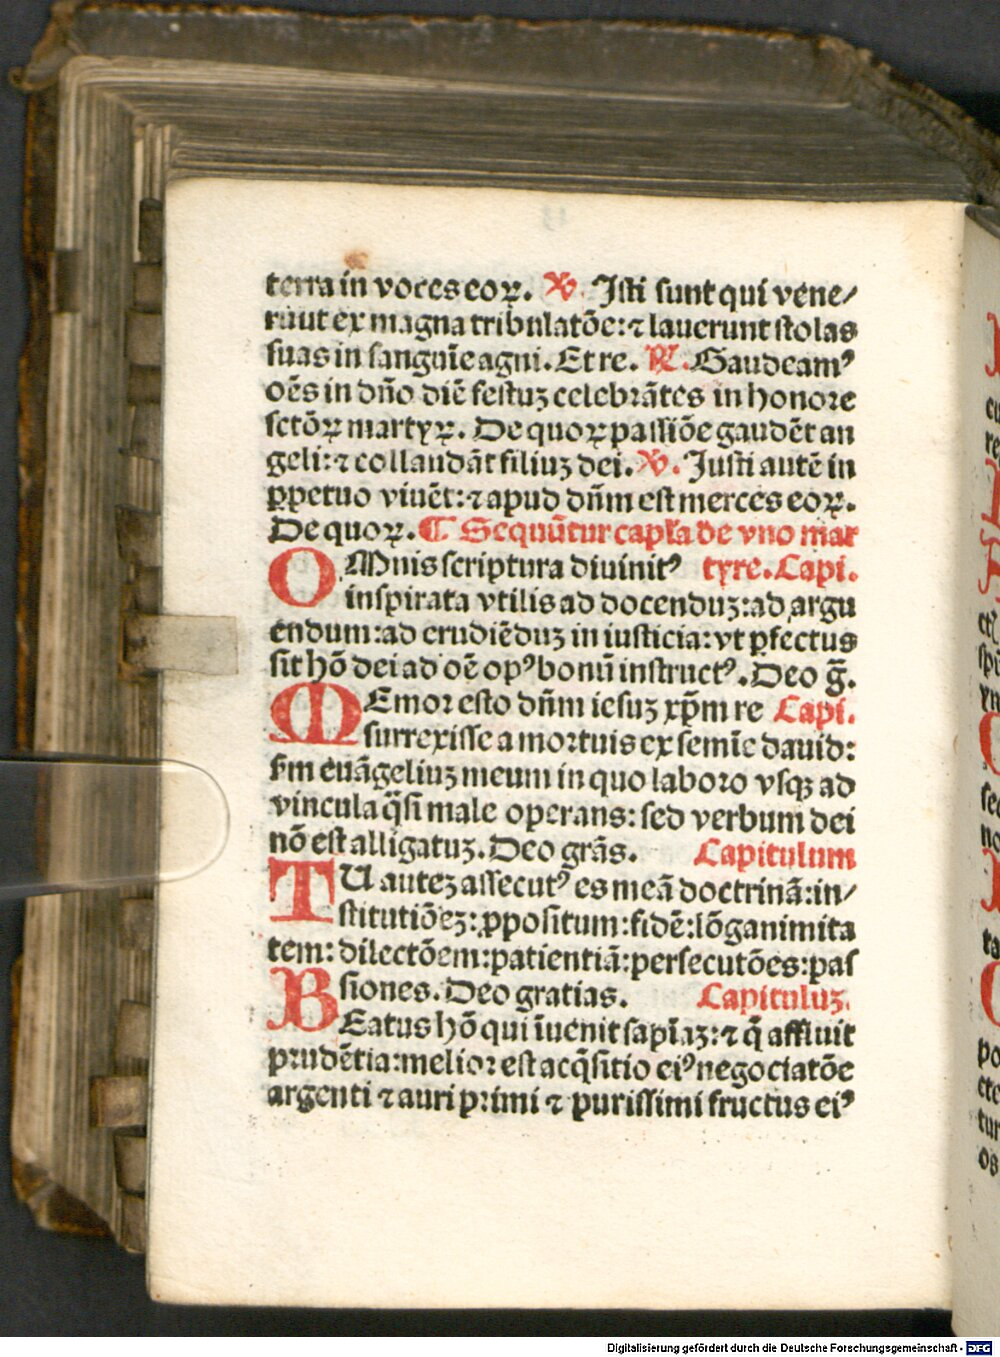 terra in voces eoꝝ. ℣. Isti sunt qui vene⸗
rūut ex magna tribulatōe: ⁊ lauerunt stolas
suas in sanguīe agni. Et re. ℟. Gaudeamꝰ
oēs in dn̄o diē festuꝫ celebrātes in honore
sctōꝝ martyꝝ. De quoꝝ passiōe gaudēt an
geli: ⁊ collaudāt filiuꝫ dei. ℣. Justi autē in
ꝑpetuo viuēt: ⁊ apud dn̄m est merces eoꝝ.
De quoꝝ. ¶ Sequūtur capl̄a de vno mar
OMnis scriptura diuinitꝰ tyre. Capi.
inspirata vtilis ad docenduꝫ: ad argu
endum: ad erudiēduꝫ in iusticia: vt ꝑfectus
sit hō dei ad oē opꝰ bonū instructꝰ. Deo ḡ.
MEmor esto dn̄m iesuꝫ xp̄m re Capi.
surrexisse a mortuis ex semīe dauid:
s̄m euāgeliuꝫ meum in quo laboro vsqꝫ ad
vincula q̄si male operans: sed verbum dei
nō est alligatuꝫ. Deo grās. Capitulum
TU auteꝫ assecutꝰ es meā doctrinā: in⸗
stitutiōeꝫ: ꝓpositum: fidē: lōganimita
tem: dilectōem: patientiā: persecutōes: pas
siones. Deo gratias. Capituluꝫ.
BEatus hō qui īuenit sapīaꝫ: ⁊ q̄ affluit
prudētia: melior est acq̄sitio eiꝰ negociatōe
argenti ⁊ auri primi ⁊ purissimi fructus eiꝰ
Digitalisierung gefördert durch die Deutsche Forschungsgemeinschaft - DFG